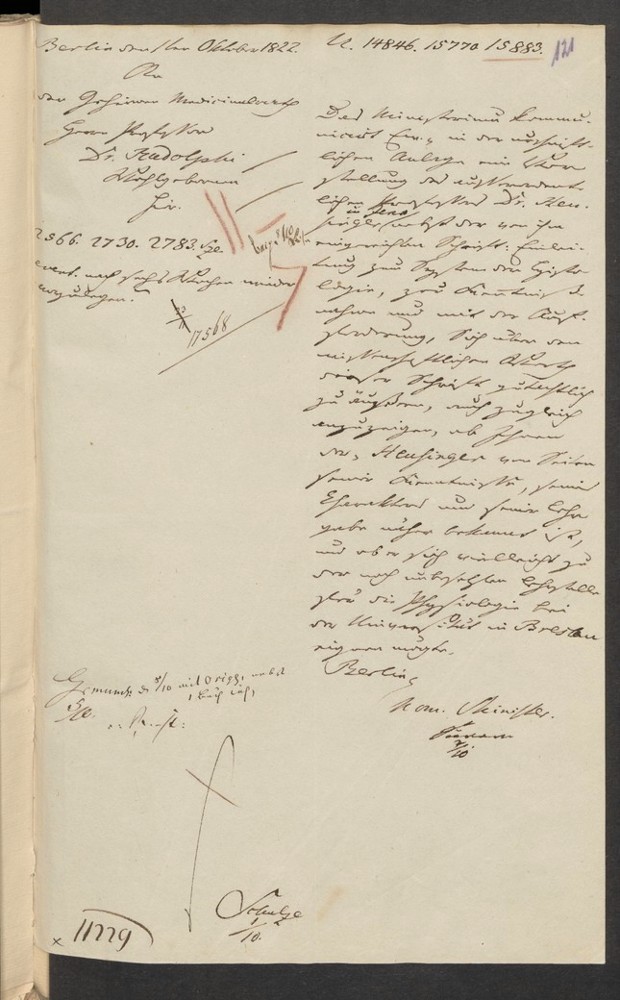 Berlin den 1ten Oktober 1822.
U. 14846. 15770 15883.
121
An
den Geheimen Medicinalrath
Herrn Professor
Dr. Rudolphi
Wohlgeboren
hier.
2566. 2730. 2783.
event. nach sechs Wochen wieder
vorzulegen.
17568
Das Ministerium kommu-
nicirt Ew. in der urschrift-
lichen Anlage eine Vor-
stellung des außerordent-
lichen Professors Dr. Heu-
singer in Jena nebst der von ihm
eingereichten Schrift: Einlei-
tung zum System der Histo-
logie, zur Kenntniß-
nahme und mit der Auf-
forderung, Sich über den
wissenschaftlichen Werth
dieser Schrift gutachtlich
zu äußern, auch zugleich
anzuzeigen, ob Ihnen
der Heusinger von Seiten
seiner Kenntnisse, seines
Charakters und seiner Lehr-
gabe näher bekannt ist,
und ob er sich vielleicht zu
der noch unbesetzten Lehrstelle
für die Physiologie bei
der Universität in Breslau
eignen möchte.
Berlin,
Nom. Minister.
Schulze
1/10.
11229